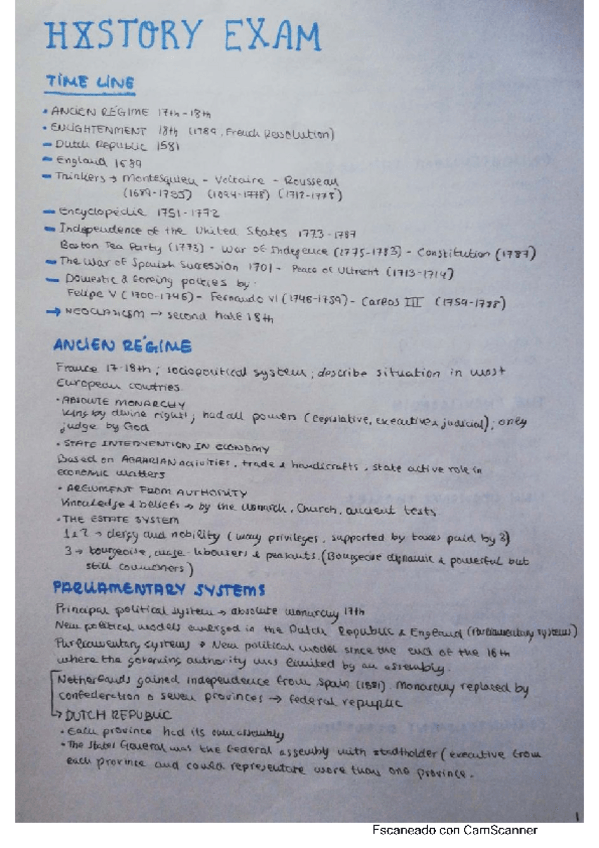 HISTORY EXAM
TIME LINE
• ANCIEN RÉGIME 17th-18th
• ENLIGHTENMENT 18th (1789, French Revolution)
- Dutch Republic 1581
- England 1689
- Thinkers → Montesquieu - Voltaire - Rousseau
(1689-1755) (1694-1778) (1712-1778)
- Encyclopédie 1751-1772
- Independence of the United States 1773-1787
Boston Tea Party (1773) - War of Indepence (1775-1783) - Constitution (1787)
- The War of Spanish Succession 1701 - Peace of Utrecht (1713-1714)
- Domestic & foreing policies by:
Felipe V (1700-1746) - Fernando VI (1746-1759) - Carlos III (1759-1788)
→ NEOCLASICISM → second half 18th
ANCIEN RÉGIME
France 17-18th; sociopolitical system; describe situation in most
European countries.
• ABSOLUTE MONARCHY
King by divine right; had all powers (legislative, executive & judicial); only
judge by God
• STATE INTERVENTION IN ECONOMY
Based on AGRARIAN activities, trade & handicrafts, state active role in
economic matters
• ARGUMENT FROM AUTHORITY
Knowledge & beliefs → by the monarch, Church, ancient texts
• THE ESTATE SYSTEM
1 & 2 → clergy and nobility (many privileges, supported by taxes paid by 3)
3 → bourgeoise, wage-labourers & peasants. (Bourgeoise dynamic & powerful but
still commoners)
PARLIAMENTARY SYSTEMS
Principal political system → absolute monarchy 17th
New political models emerged in the Dutch Republic & England (Parliamentary systems)
Parliamentary systems → New political model since the end of the 16th
where the governing authority was limited by an assembly.
Netherlands gained independence from Spain (1581). Monarchy replaced by
confederation of seven provinces → federal republic
→ DUTCH REPUBLIC
• Each province had its own assembly
• The States General was the federal assembly with stadholder (executive from
each province and could representate more than one province.
1
Escaneado con CamScanner